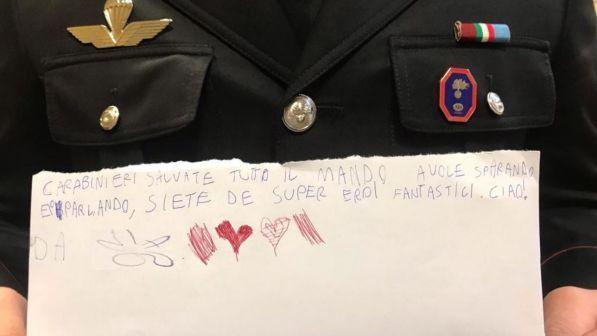 CARABINIERI SALVATE TUTTO IL MANDO AVOLE SPARANDO
E PARLANDO, SIETE DE SUPER EROI FANTASTICI. CIAO!
DA